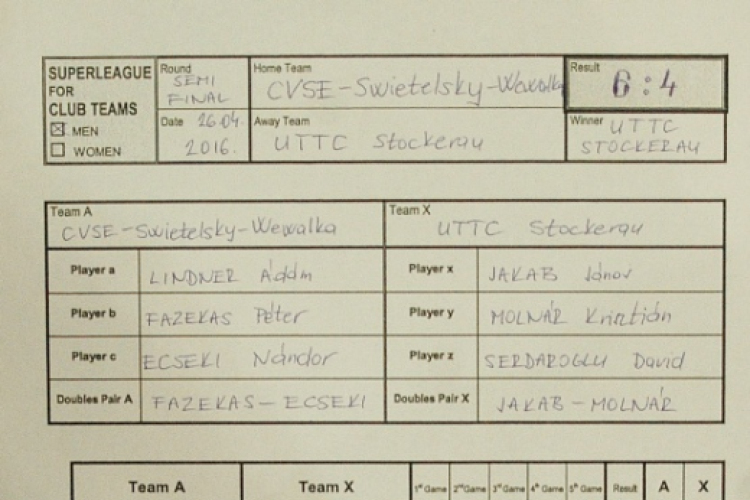 SUPERLEAGUE FOR CLUB TEAMS
☒ MEN
☐ WOMEN
Round SEMI FINAL
Home Team CVSE-Swietelsky-Wewalka
Result 6:4
Date 26.04. 2016.
Away Team UTTC Stockerau
Winner UTTC STOCKERAU
Team A CVSE-Swietelsky-Wewalka
Team X UTTC Stockerau
Player a LINDNER Ádám
Player x JAKAB János
Player b FAZEKAS Péter
Player y MOLNÁR Krisztián
Player c ECSEKI Nándor
Player z SERDAROGLU David
Doubles Pair A FAZEKAS - ECSEKI
Doubles Pair X JAKAB - MOLNÁR
Team A Team X 1st Game 2nd Game 3rd Game 4th Game 5th Game Result A X